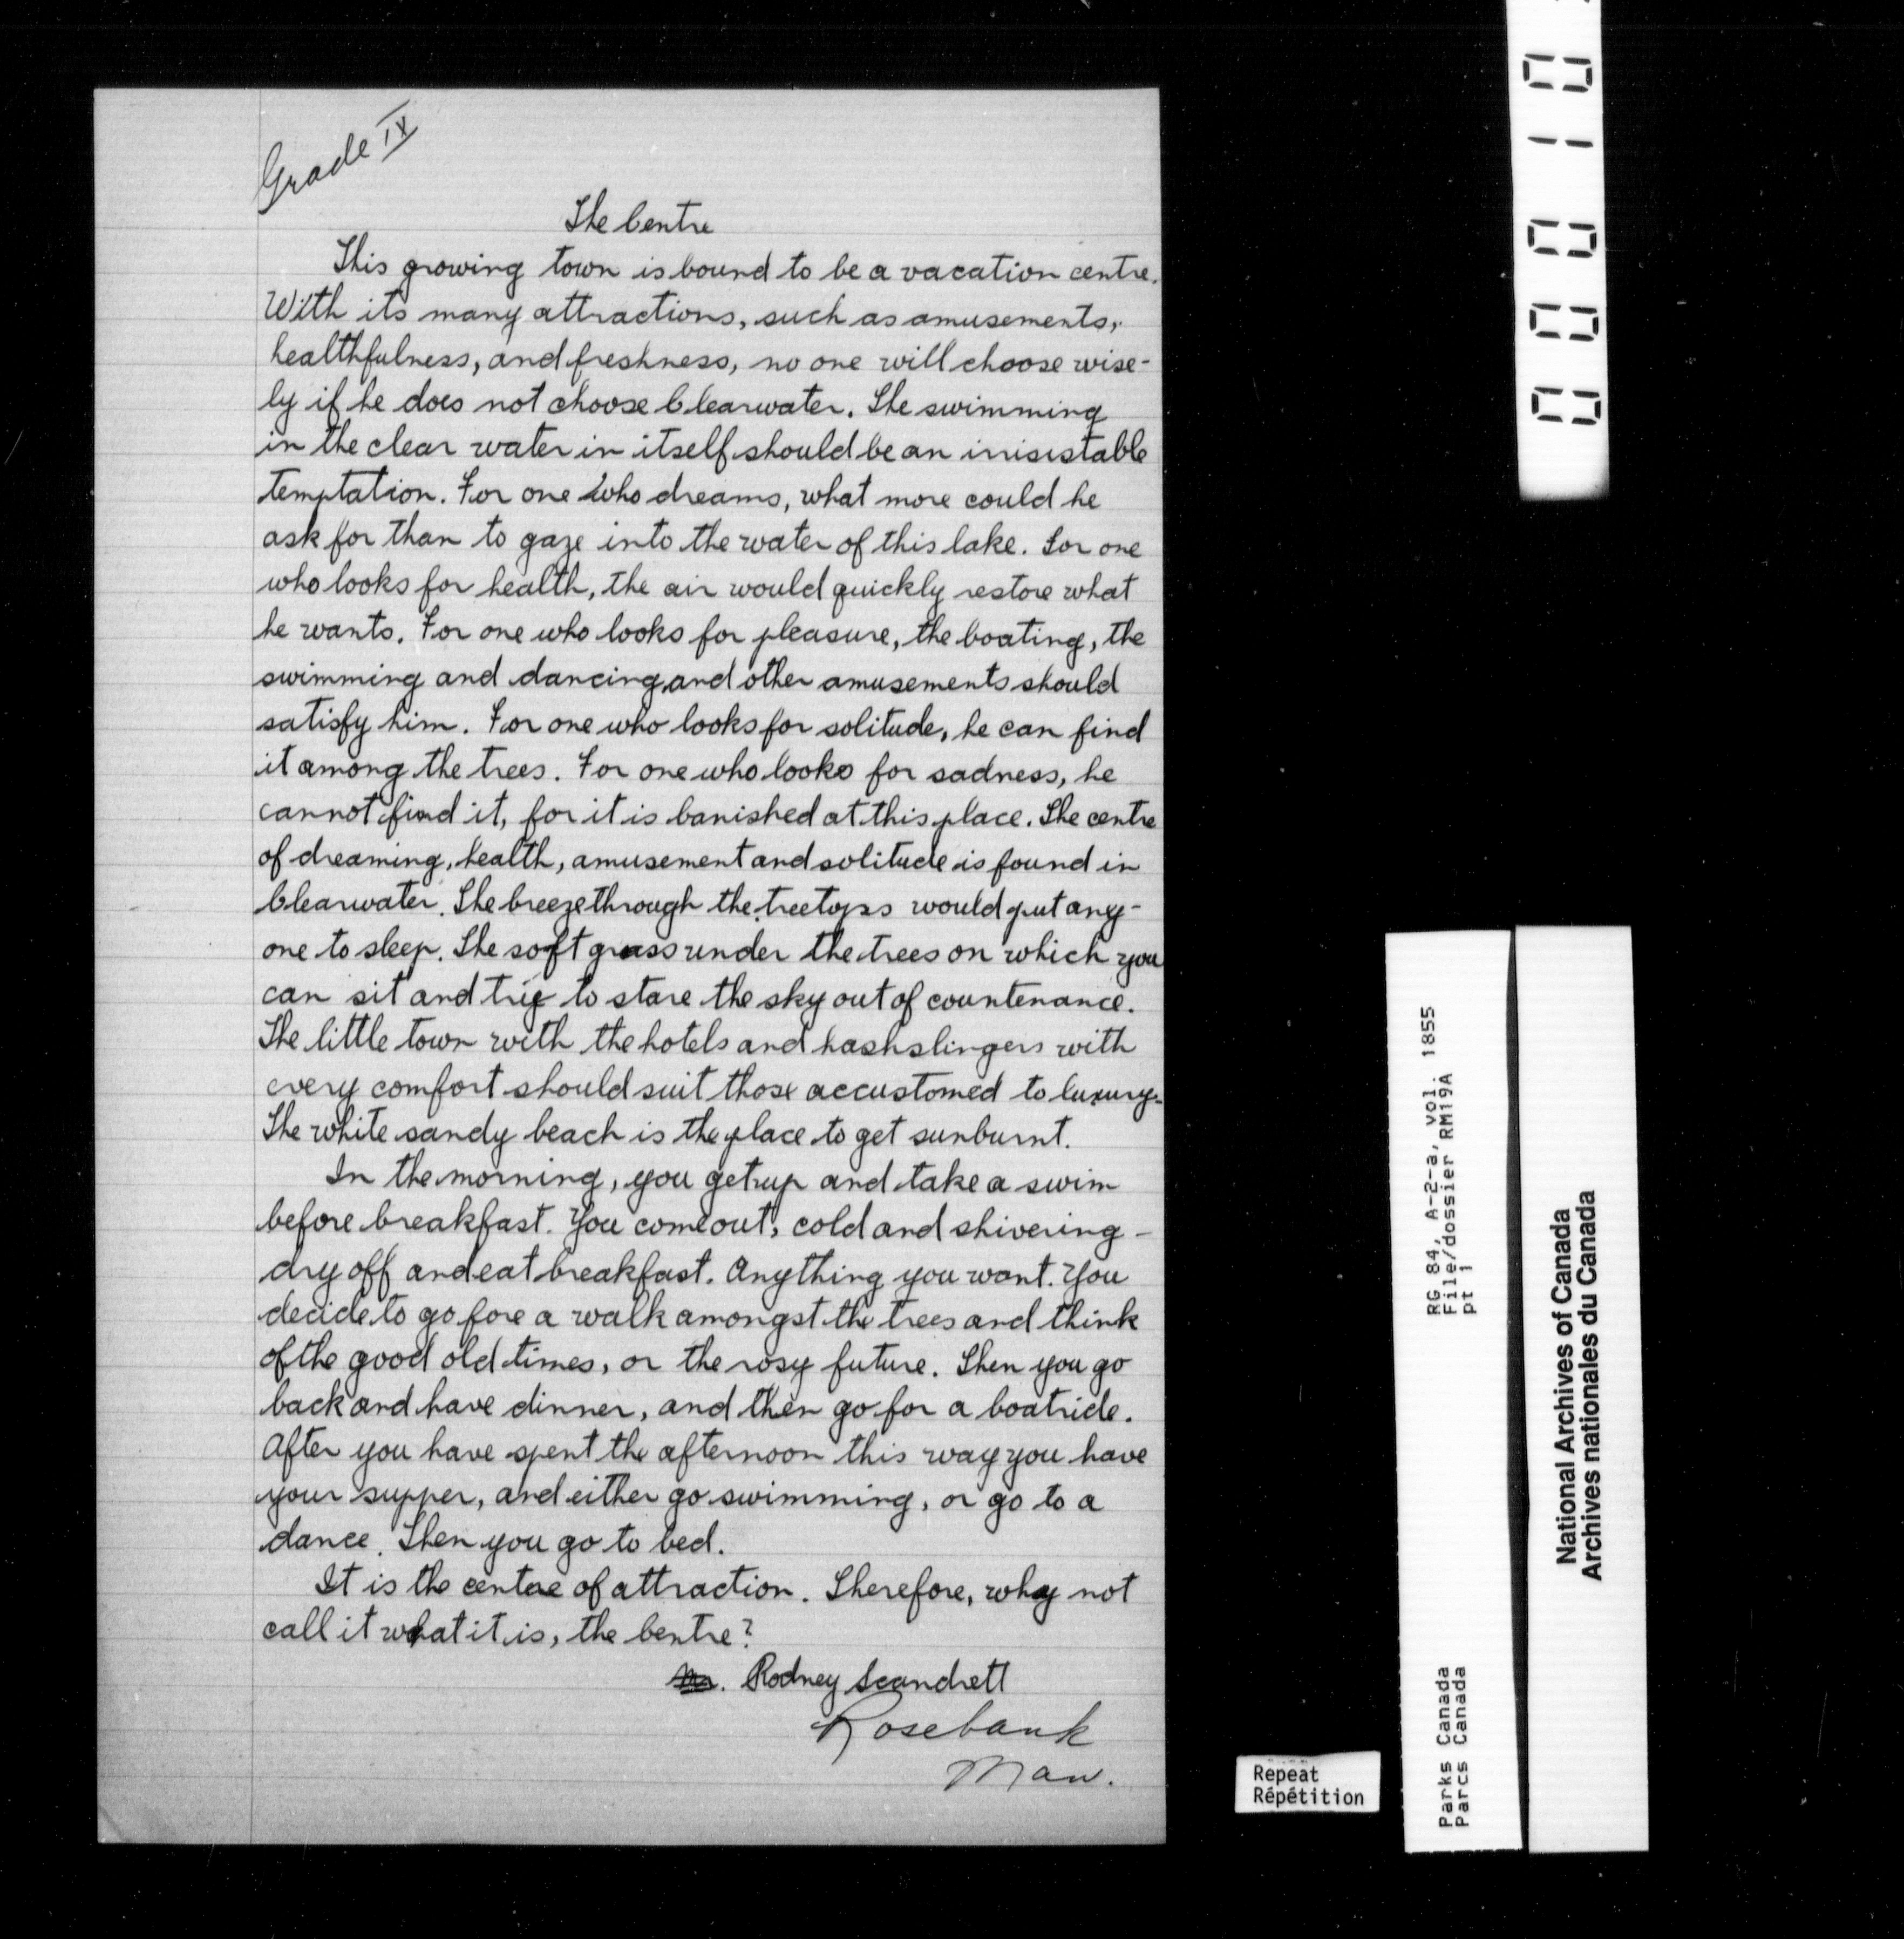 Grade IX
The Centre
This growing town is bound to be a vacation centre.
With its many attractions, such as amusements,
healthfulness, and freshness, no one will choose wise-
ly if he does not choose Clearwater. The swimming
in the clear water in itself should be an irrisistable
temptation. For one who dreams, what more could he
ask for than to gaze into the water of this lake. For one
who looks for health, the air would quickly restore what
he wants. For one who looks for pleasure, the boating, the
swimming and dancing and other amusements should
satisfy him. For one who looks for solitude, he can find
it among the trees. For one who looks for sadness, he
cannot find it, for it is banished at this place. The centre
of dreaming, health, amusement and solitude is found in
Clearwater. The breeze through the treetops would put any-
one to sleep. The soft grass under the trees on which you
can sit and try to stare the sky out of countenance.
The little town with the hotels and hashslingers with
every comfort should suit those accustomed to luxury.
The white sandy beach is the place to get sunburnt.
In the morning, you get up and take a swim
before breakfast. You come out, cold and shivering -
dry off and eat breakfast. Anything you want. You
decide to go fore a walk amongst the trees and think
of the good old times, or the rosy future. Then you go
back and have dinner, and then go for a boatride.
After you have spent the afternoon this way you have
your supper, and either go swimming, or go to a
dance. Then you go to bed.
It is the centre of attraction. Therefore, why not
call it what it is, the Centre?
Rodney Scandrett
Rosebank
Man.
00010
RG 84, A-2-a, vol. 1855
File/dossier RM19A
pt 1
Parks Canada
Parcs Canada
National Archives of Canada
Archives nationales du Canada
Repeat
Répétition